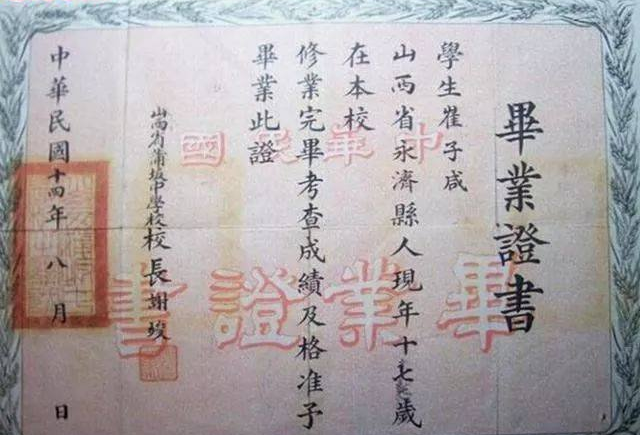 畢業證書
學生崔子咸
山西省永濟縣人現年十七歲
在本校
修業完畢考查成績及格准予
畢業此證
山西省蒲坂中學校校長
中華民國十四年八月 日
中華民國
畢業證書